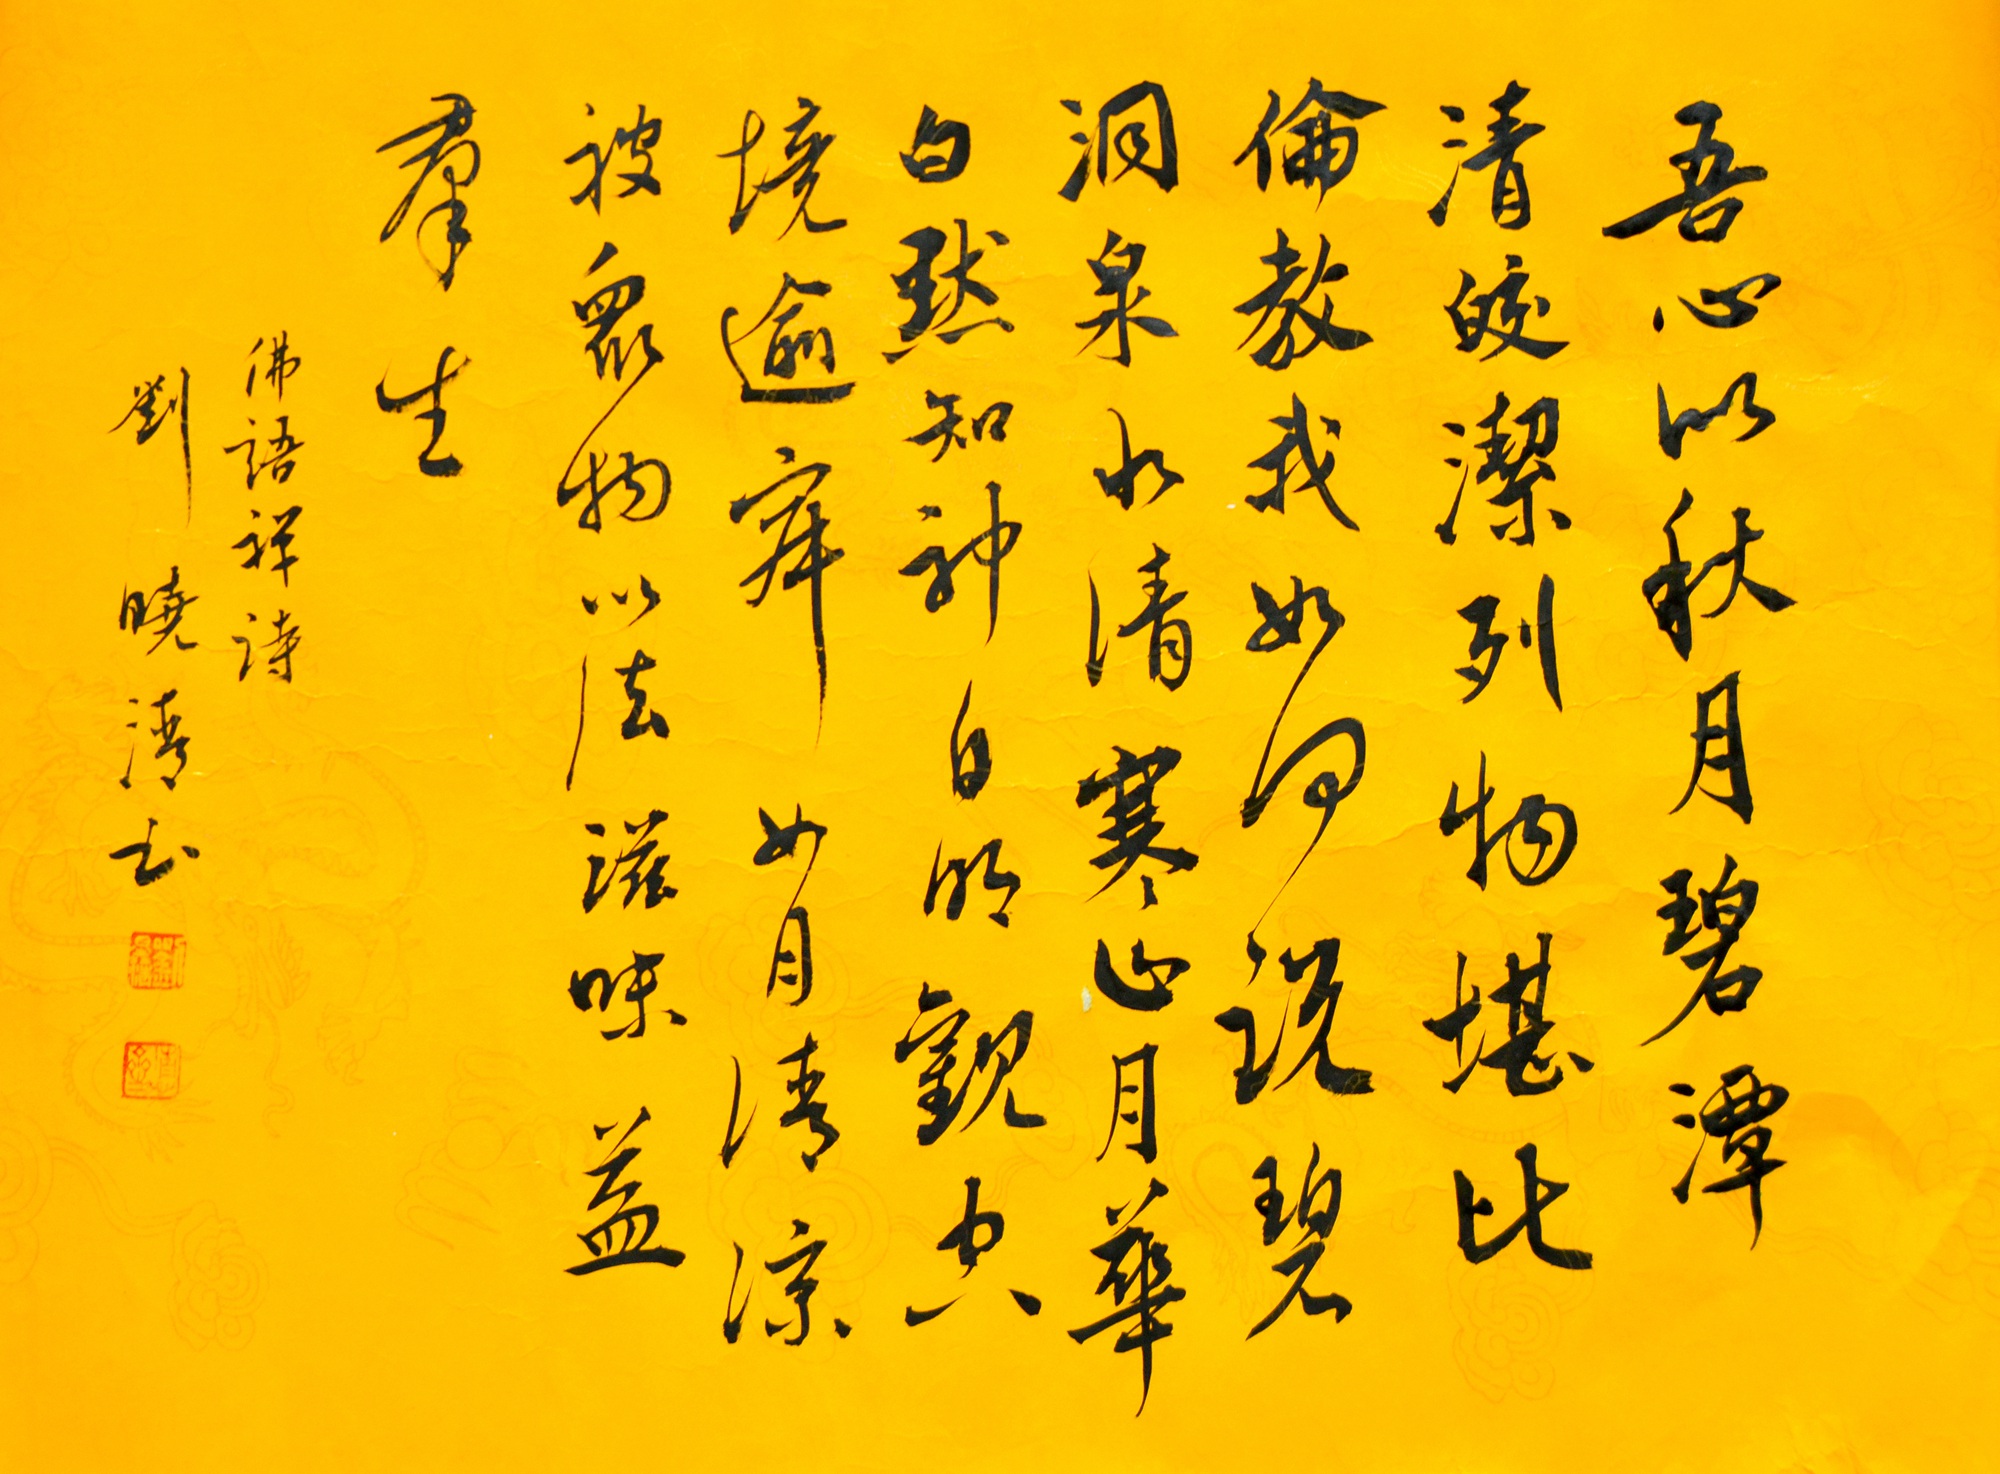 吾心似秋月碧潭
清皎潔列物堪比
倫教我如何說碧
洞泉水清寒山月華
白默知神自明觀空
境逾寂如月清涼
被眾物以法滋味益
羣生
佛語祥詩
劉曉清书